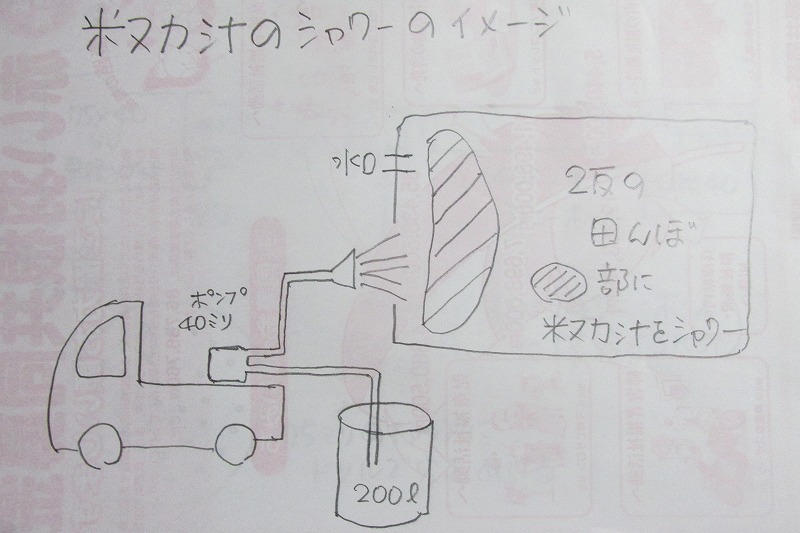 米ヌカ汁のシャワーのイメージ
水口
2反の
田んぼ
部に
米ヌカ汁をシャワー
ポンプ
40ミリ
200ℓ